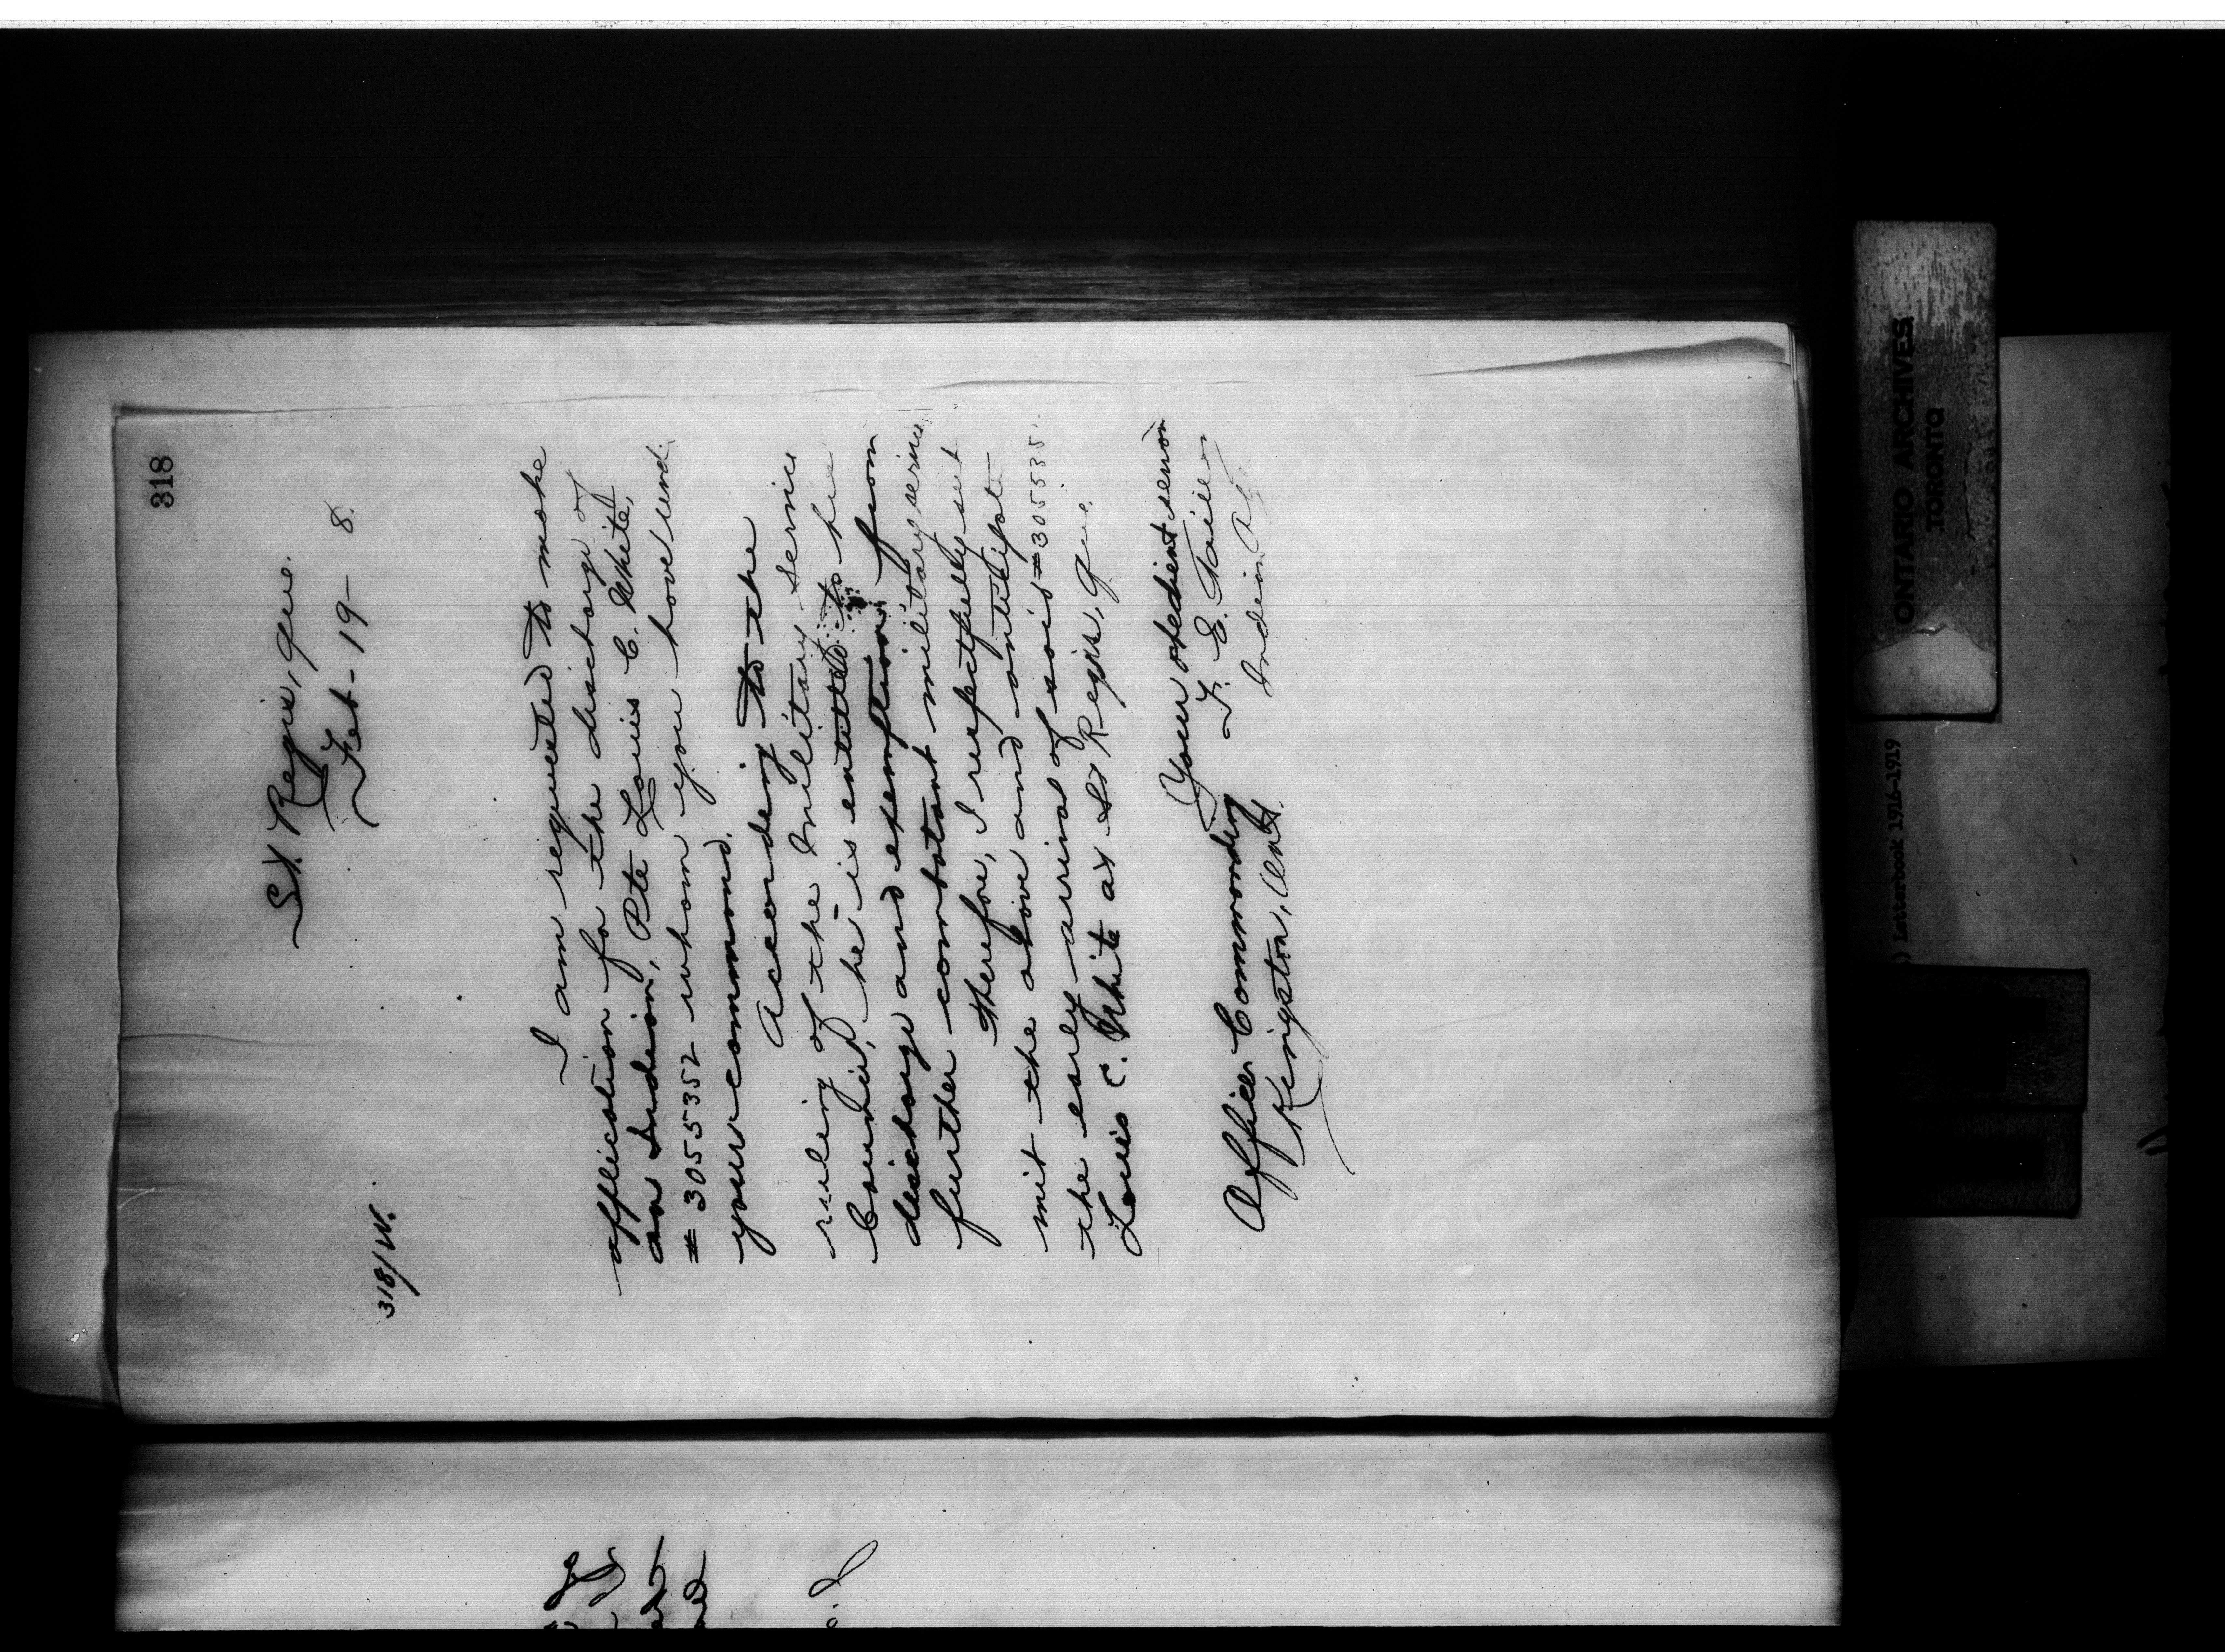 318
St. Regis, Que.
Feb - 19 - 8.
318/W.
I am requested to make
application for the discharge of
an Indian, Pte Louis C. White,
# 3055352 whom you have und
your command.
According to the
ruling of the Military Service
Council, he is entitled to his
discharge and exemption from
further combatant military service,
therefore, I respectfully sub
mit the above and anticipate
the early arrival of said # 305535
Louis C. White at St Regis, Que.
Your obedient servan
F. E. Taillon
Indian Ag
Officer Commanding
Kingston, Ont.
ONTARIO ARCHIVES
TORONTO
) Letterbook 1916-1919